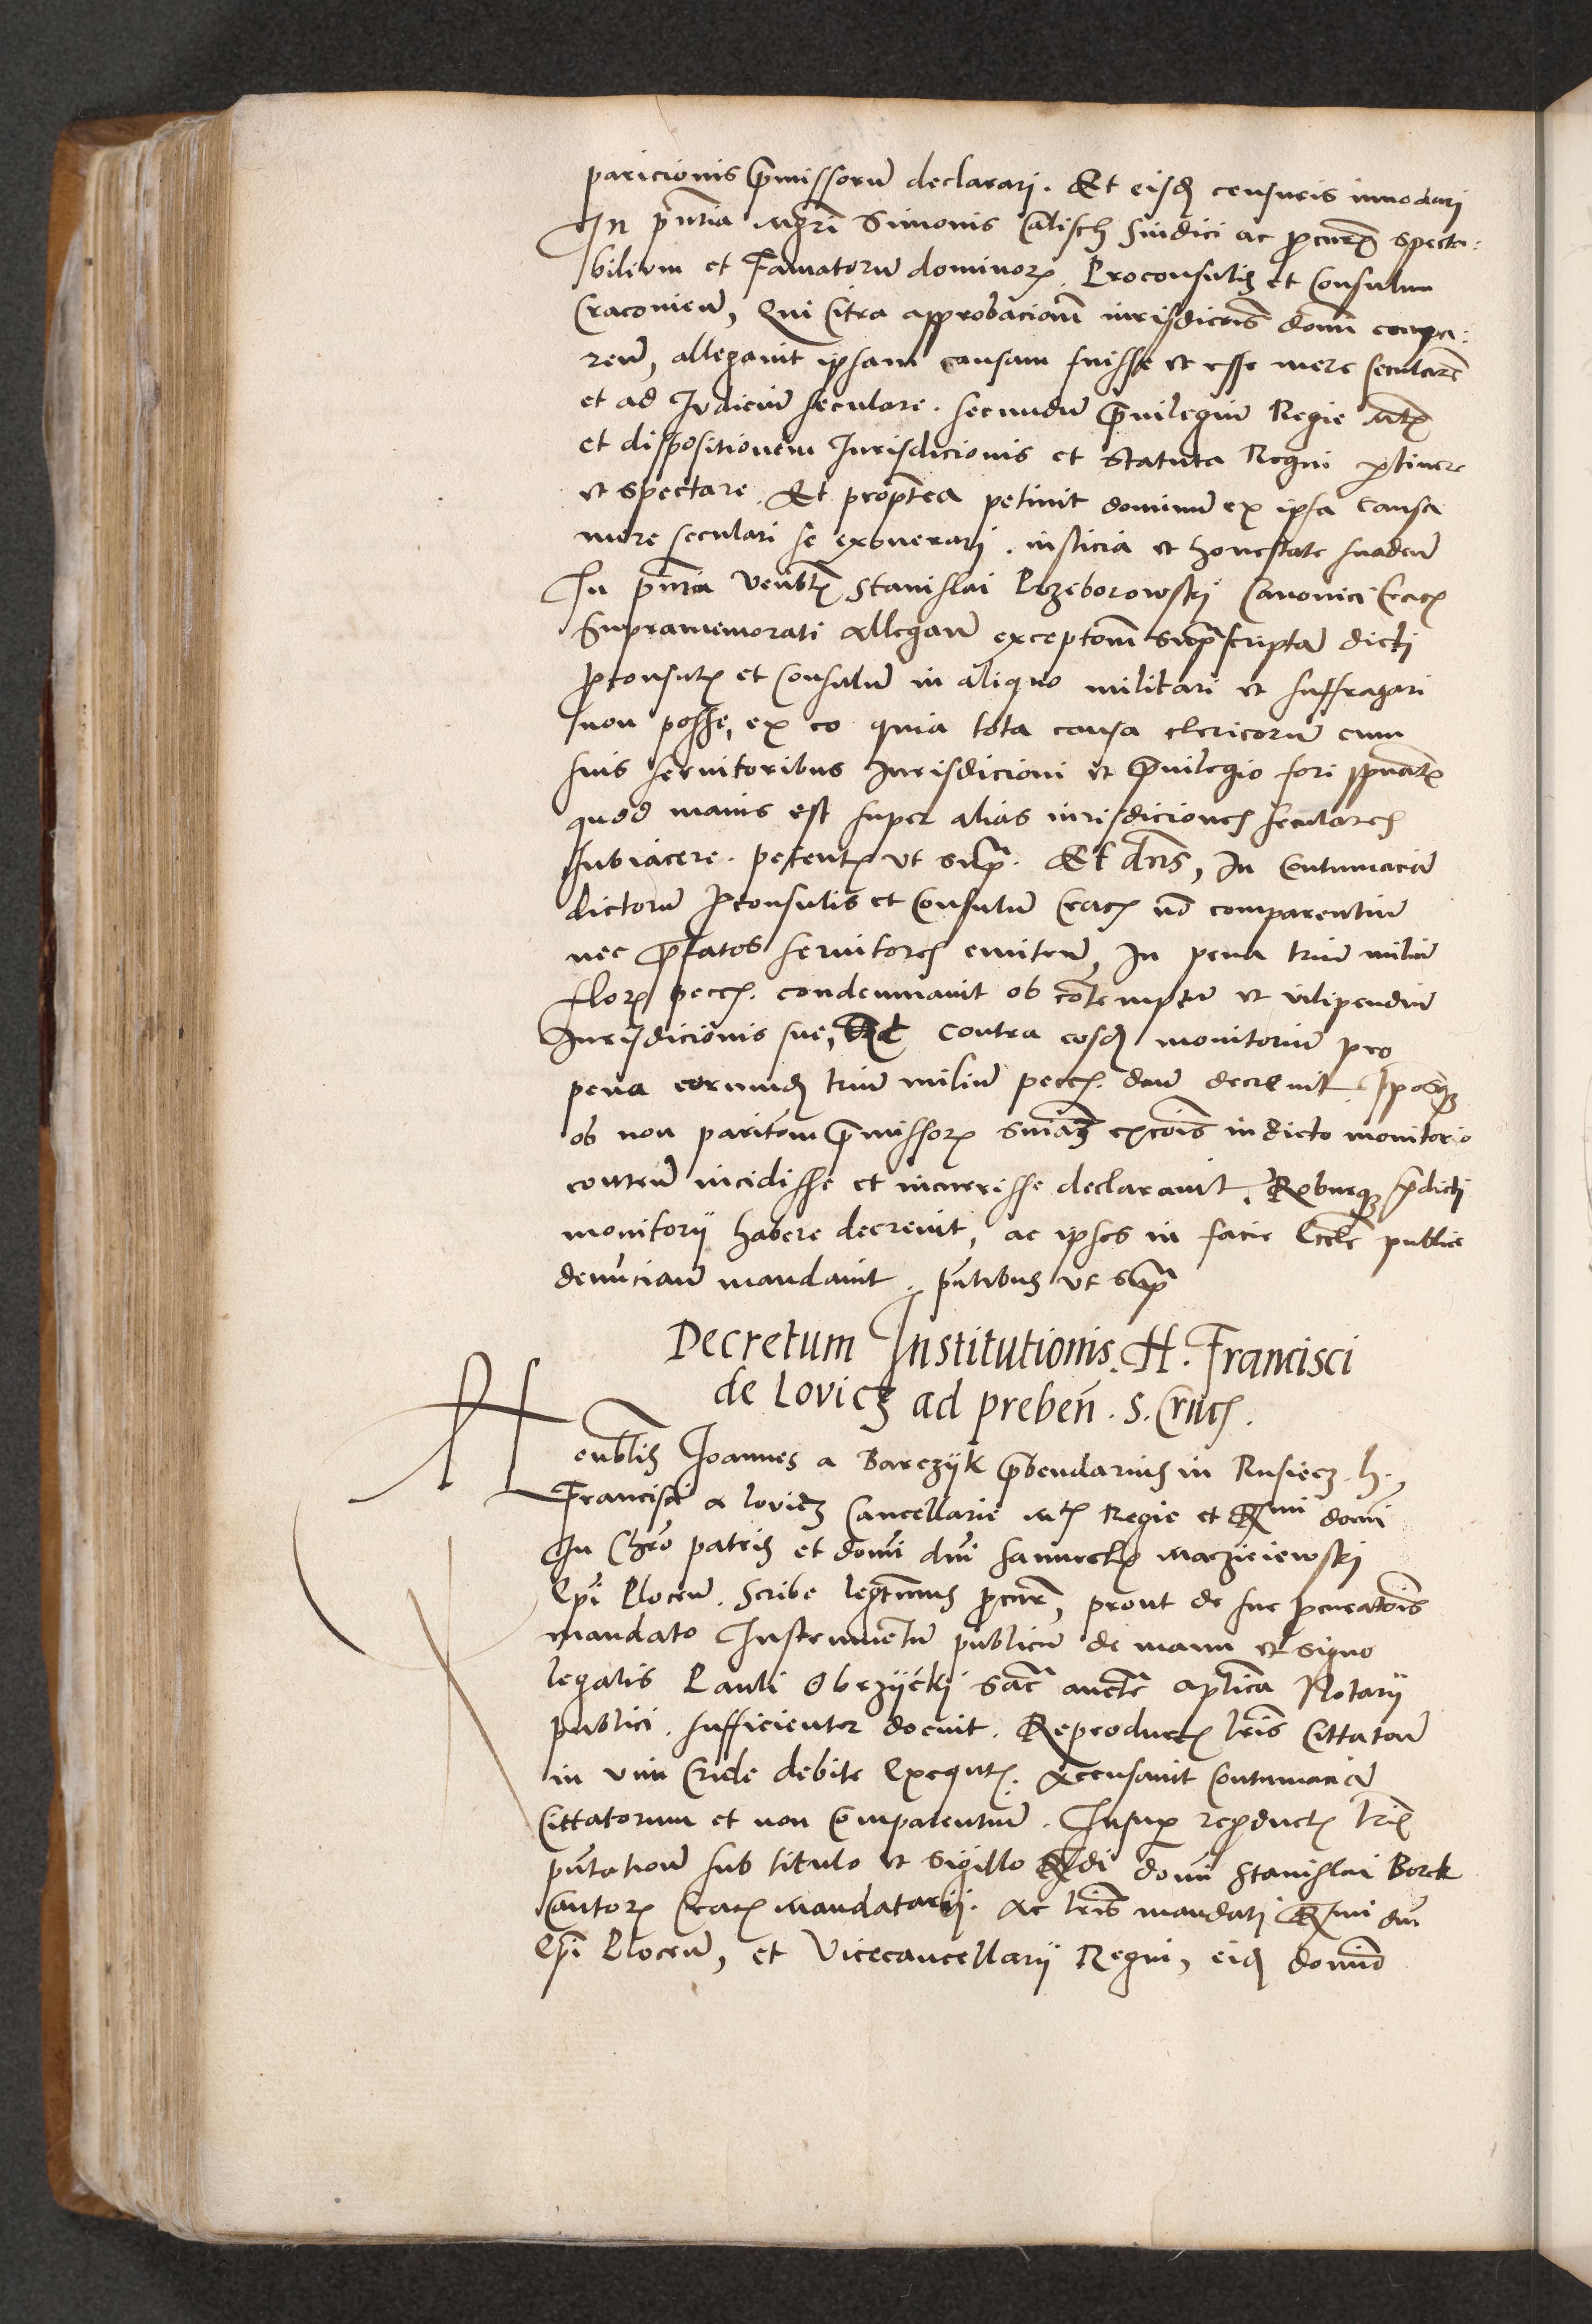 paricionis p̄missorū declarari. Et eisd̄ censuris innodari
In pn̄tia mgr̄i Simonis Calisch sindici ac p̄curē specta:
bilium et Famatorū dominor͂. Proconsulis et Consulum
Cracovieñ, Qui Citra approbacioem̄ iurisdicōis domī compa:
reñ, allegavit ipsam causam fuisse et esse mere secularē
et ad Iudiciū seculare. secundū p̄vilegiū Regie Mt͂
et dispositionem Jurisdicionis et statuta Regni p̱tinere
et spectare. Et propt̄ea petivit dominū ex ipsa causa
mere seculari se exonerari. iusticia et honestate suadeñ
In pn̄tia veñblis Stanislai Przeborowskj Canonici Crac͂
Supramemorati allegañ exceptiom̄ sup̄scriptā dicti
p̱consul͂ et Consulū in aliquo militari et suffragari
non posse, ex eo quia tota causa clericorū cum
suis servitoribus Jurisdicioni et p̄vilegio fori spūal͂
quod maius est super alias iurisdiciones seculares
subiacere. petent͂ ut sup̄. Et dn̄s, In Contumaciā
dictorū p̱consulis et Consulū Crac͂ nō comparentiū
nec p̄fatos servitores emitteñ, In pena triū miliū
flor͂ pecc͂. condemnavit ob cōtemptū et vilipendiū
Jurisdicionis sue, Et contra eosd̄ monitoriū pro
pena eorumd̄ triū miliū pecc͂. dañ decrevit. Iposq̄
ob non paritōem p̄missor͂ sniām excōis in dicto monitorio
contentā incidisse et incurrisse declaravit. Roburq̄ p̄dicti
monitorij habere decrevit, ac ipsos in facie Eccl̄e publice
denūciañ mandavit. pn̄tibus ut sup̄
Decretum Institutionis. H. Francisci
de Lovicz ad prebeñ. S. Cruc͂.
Heñblis Joannes a Barczÿk p̄bendarius in Rusiecz. h.
Francisci a lovicz Cancellarie Mt͂ Regie et Rmi domī
In Chrō patris et domī dnī Samuelis Maczieiewskj
Epī Ploceñ. Scribe legtīmus p̄curē, prout de sue p̱curatōis
mandato Instrumentū publicū de manu et signo
legalis Pauli Obrzÿckj sacr̄ auctē apl̄ica Notarij
publici. sufficienter docuit. Reproduct͂ lrīs Cittatoñ
in vim Cride debite Exequt͂. Accusavit Contumaciā
Cittatorum et non Comparentiū. Insup̱ rep̱duct͂ lrīs
pn̄tationū sub titulo et sigillo Rdi domī Stanislai Borek
Cantor͂ Crac͂ mandatarij. Ac lrīs mandati Rmi dnī
Epī Ploceñ, et Vicecancellarij Regni, eid̄ dominō